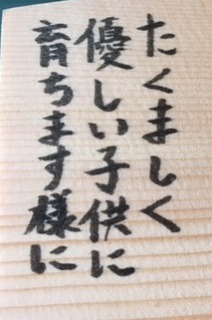 たくましく
優しい子供に
育ちます様に